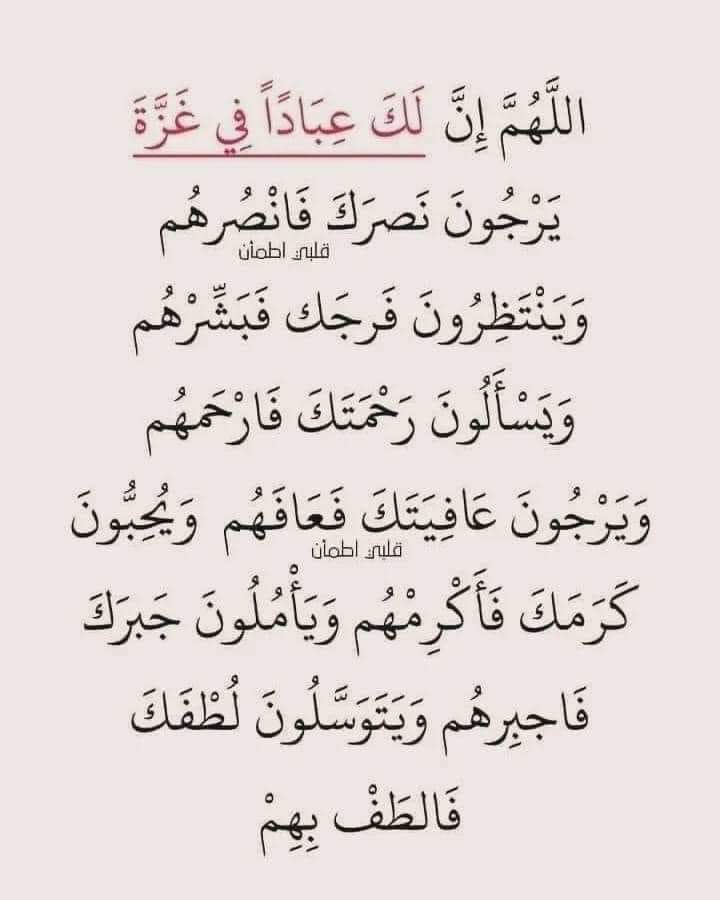 اللَّهُمَّ إِنَّ لَكَ عِبَادًاً فِي غَزَّةَ
يَرْجُونَ نَصرَكَ فَانْصُرهُم
قلبي اطمأن
وَيَنْتَظِرُونَ فَرجَك فَبَشِّرْهُم
وَيَسْأَلُونَ رَحْمَتَكَ فَارْحَمهُم
وَيَرْجُونَ عَافِيَتَكَ فَعَافَهُم وَيُحِبُّونَ
قلبي اطمأن
كَرَمَكَ فَأَكْرِمْهُم وَيَأْمُلُونَ جَبرَكَ
فَاجبِرهُم وَيَتَوَسَّلُونَ لُطْفَكَ
فَالطَفْ بِهِمْ